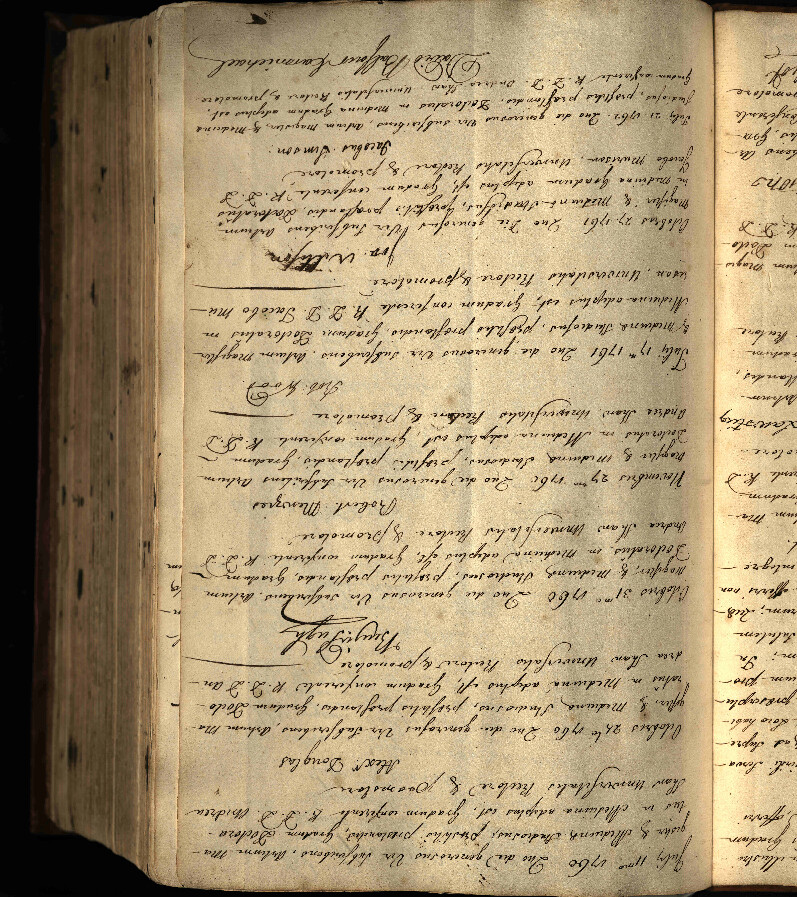 July 11mo 1760 Quo die generosus Vir Subscribens, Artium Ma-
gister & Medicinæ Studiosus, præstitis, præstandis, Gradum Doctora-
tus in Medicina adeptus est, Gradum conferente R. D. D. Andrea
Shaw Universitatis Rectore & promotore
Alexr Douglas
Octobris 24to 1760 Quo die generosus Vir Subscribens, Artium Ma-
gister, & Medicinæ Studiosus, præstitis, præstandis, Gradum Docto-
ratus in Medicina adeptus est, Gradum conferente R. D. D. An-
drea Shaw Universitatis Rectore & promotore
Benjn Pugh
Octobris 31mo 1760 Quo die generosus Vir Subscribens, Artium
Magister, & Medicinæ Studiosus, præstitis, præstandis, Gradum
Doctoratus in Medicina adeptus est, Gradum conferente R. D. D.
Andrea Shaw Universitatis Rectore & promotore
Robert Menzies
Novembris 27mo 1760 Quo die generosus Vir Subscribens Artium
Magister & Medicinæ Studiosus, præstitis, præstandis, Gradum
Doctoratus in Medicina adeptus est, Gradum conferente R. D. D.
Andrea Shaw Universitatis Rectore & promotore
Rob: Wood
July 17mo 1761 Quo die generosus Vir Subscribens, Artium Magister
& Medicinæ Studiosus, præstitis, præstandis, Gradum Doctoratus in
Medicina adeptus est, Gradum conferente R. D. D. Jacobo Mu-
rison, Universitatis Rectore & promotore
Jon. Willison
Octobris 27 1761 Quo Die generosus Vir Subscribens Artium
Magister & Medicinæ Studiosus, præstitis, præstandis, Doctoratus
in Medicina Gradum adeptus est, Gradum conferente R. D. D.
Jacobo Murison, Universitatis Rectore & promotore
Jacobus Simson.
July 21 1762 Quo die generosus Vir Subscribens, Artium Magister, & Medicinæ
Studiosus, præstitis præstandis, Doctoratus in Medicina Gradum adeptus est,
Gradum conferente R. D. D. Andrea Shaw Universitatis Rectore & promotore
David Balfour Carmichael